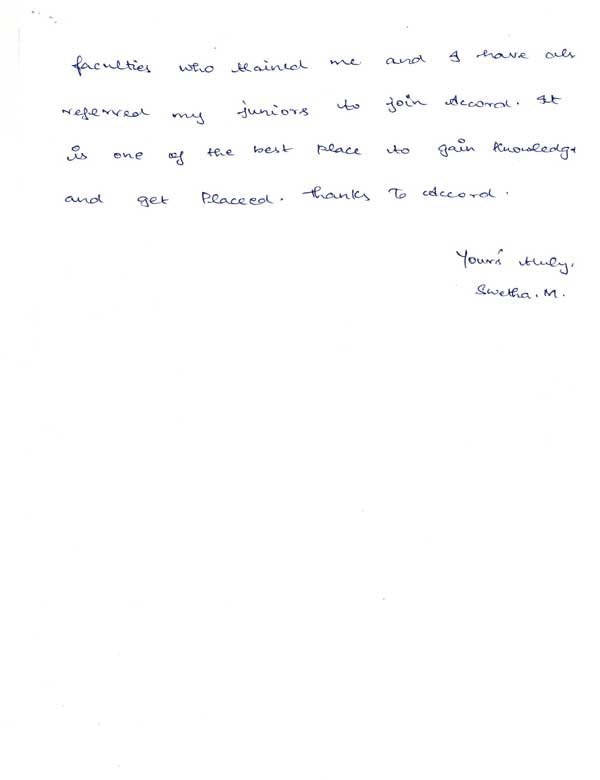 faculties who trained me and I have als
referred my juniors to join Accord. It
is one of the best place to gain knowledge
and get Placeed. thanks To Accord.
Yours truly,
Swetha. M.